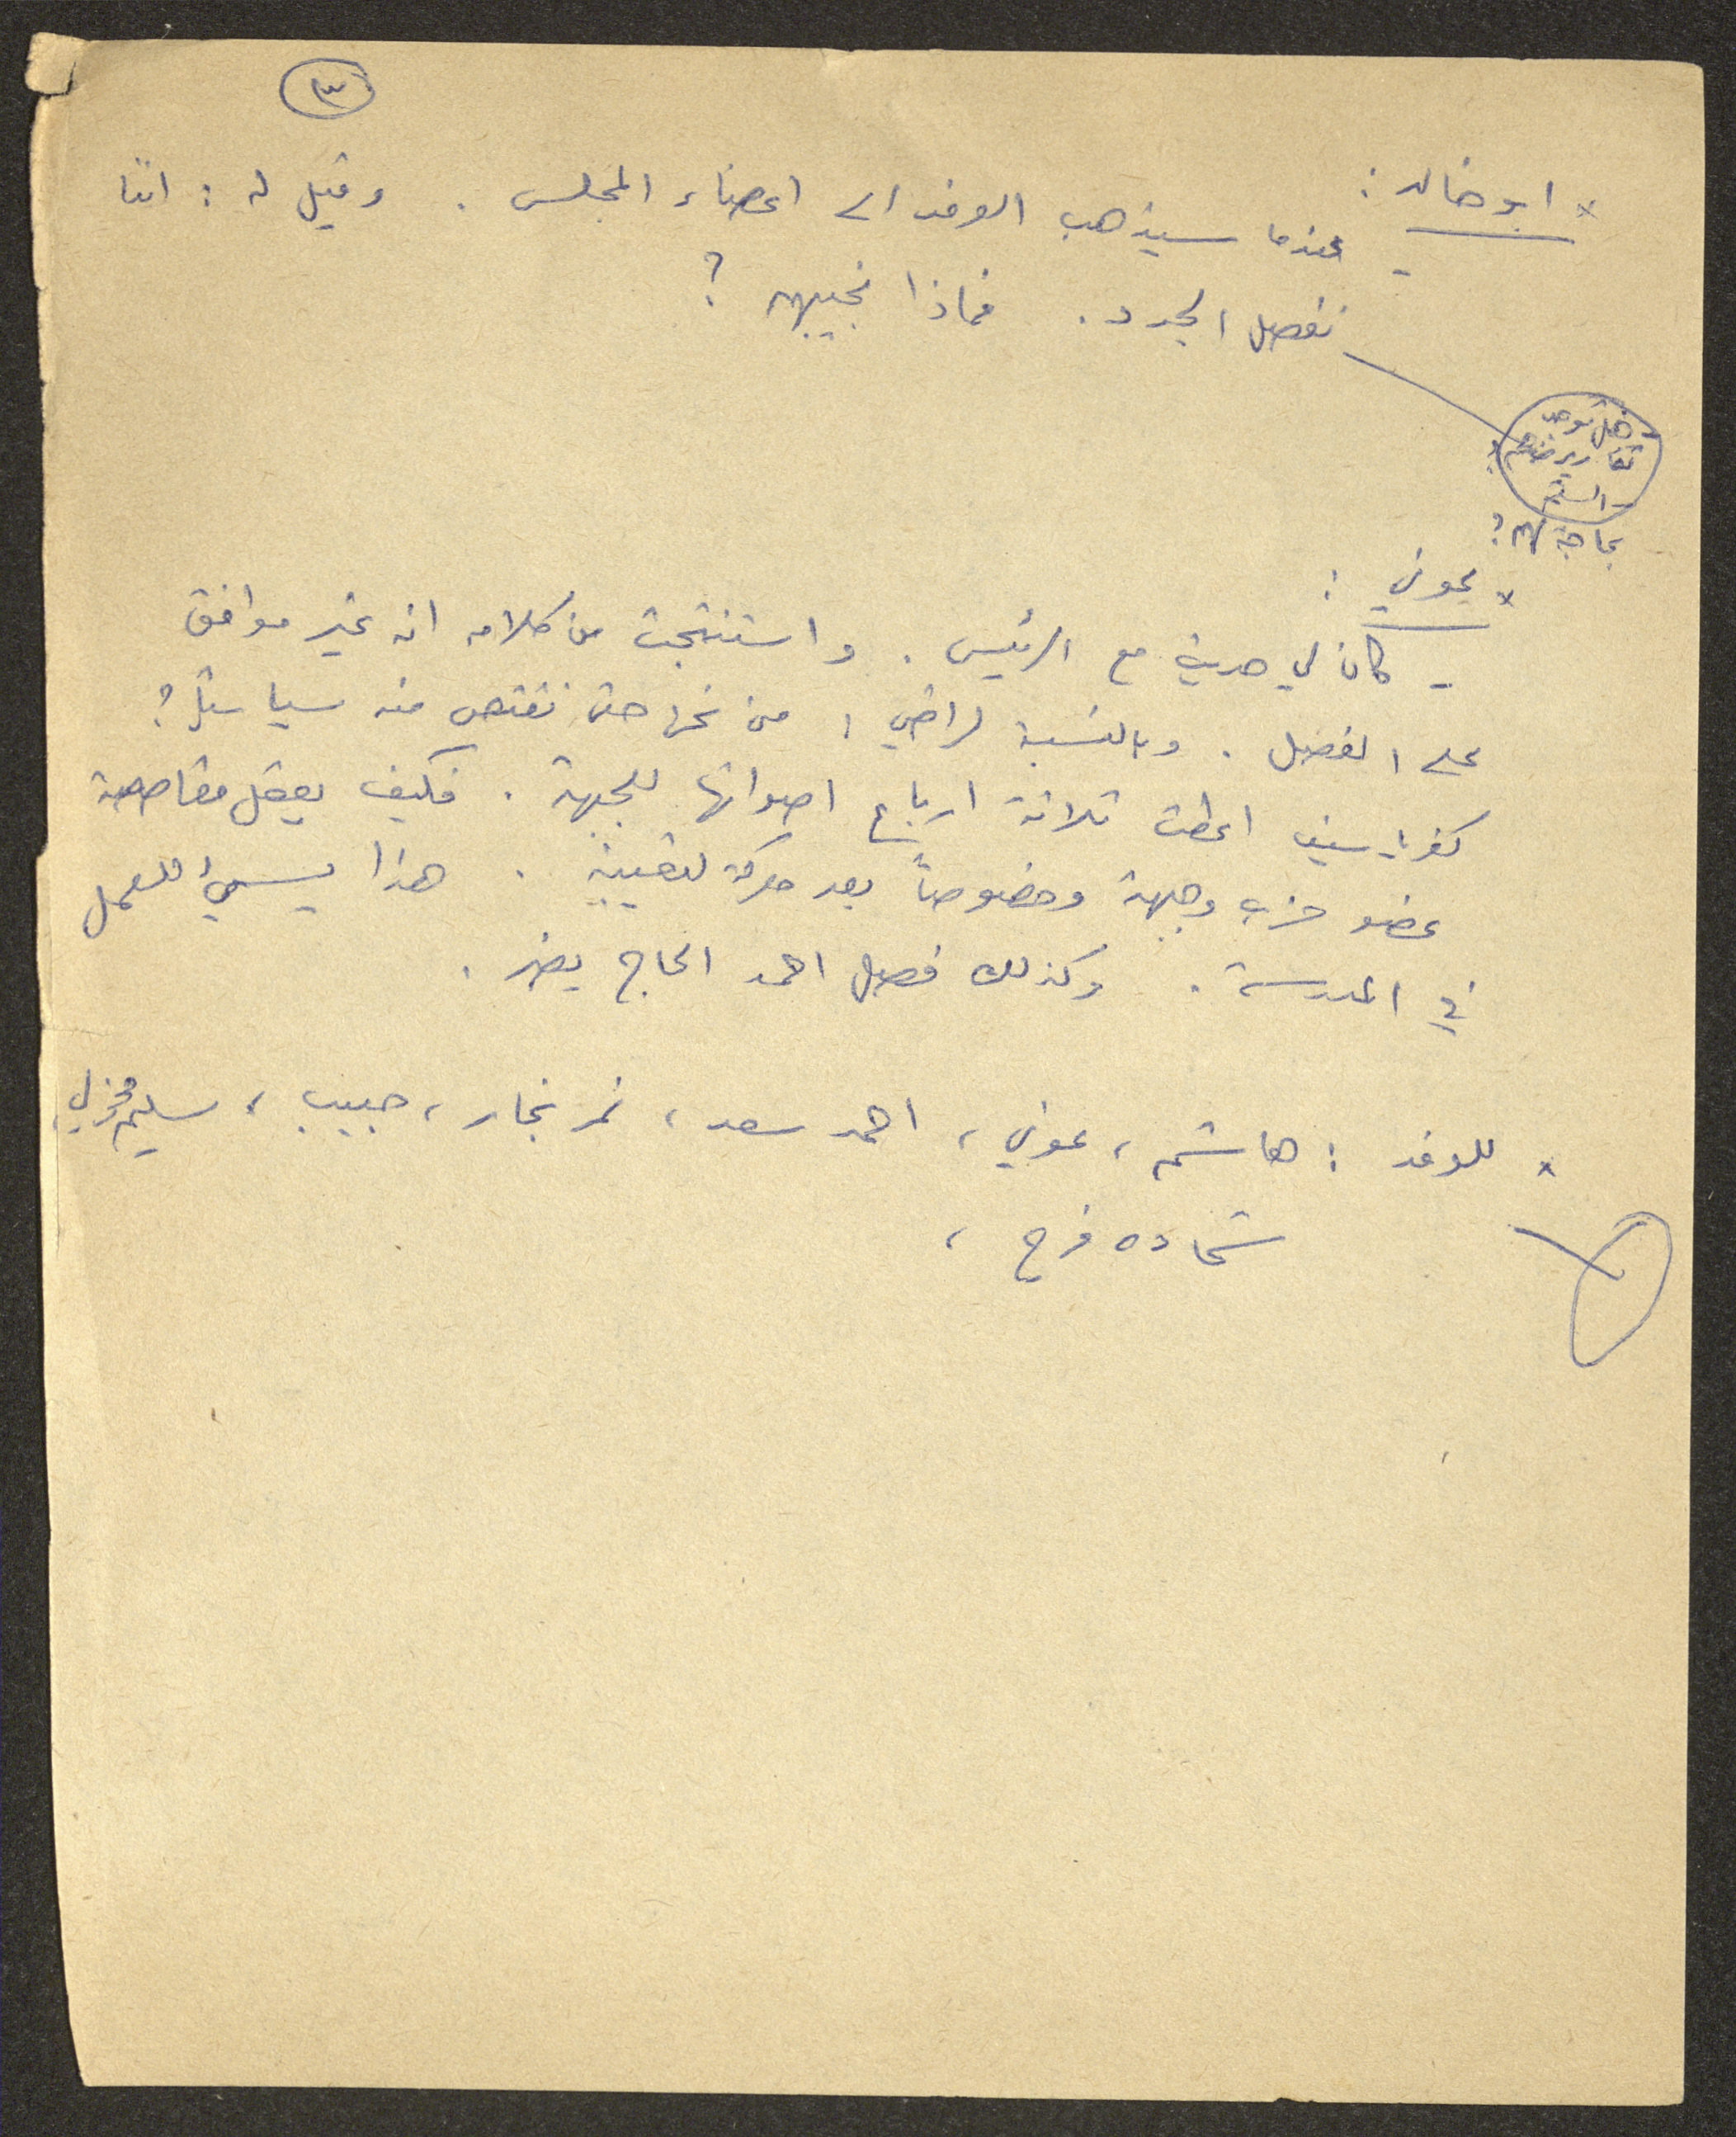 ٣
* ابو خالد :
- عندما سيذهب الوفد الى اعضاء المجلس . وقيل له : اننا
نفصل الجدد . فماذا نجيبهم ?
- هل توجد
تقارير ضدهم ؟
- السنتم
بحاجة لهم ?
* عوني :
- كان لي حديث مع الرئيس . واستنتجت من كلامه انه غير موافق
على الفصل . وبالنسبة لراضي ، من نحن حتى نقتص منه سياسيًا ؟
كفر ياسيف اعطت ثلاثة ارباع اصواتها للجبهة . فكيف يعقل مقاصصة
عضو حزب وجبهة وخصوصاً بعد معركة لتعيينه . هذا يسيئ للعمل
في المدرسة . وكذلك فصل احمد الحاج يضر .
* للوفد : هاشم ، عوني ، احمد سعد ، نمر نجار ، حبيب ، سليم مخولي ،
شحاده فرح ،